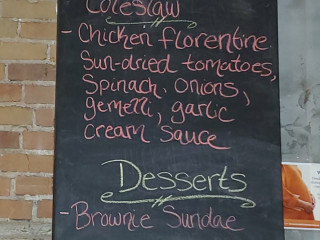 Coleslaw
- Chicken florentine
Sun-dried tomatoes,
Spinach, Onions,
gemelli, garlic
Cream Sauce
Desserts
- Brownie Sundae